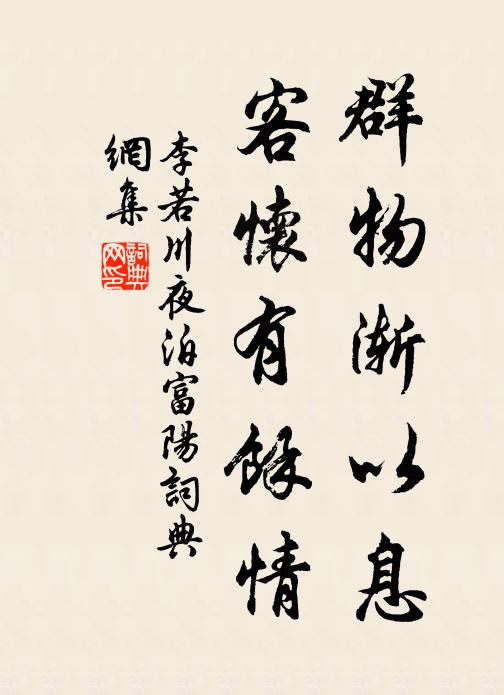 群物渐以息
客懷有餘情
李若川夜泊富陽詞典
網集
詞典网印